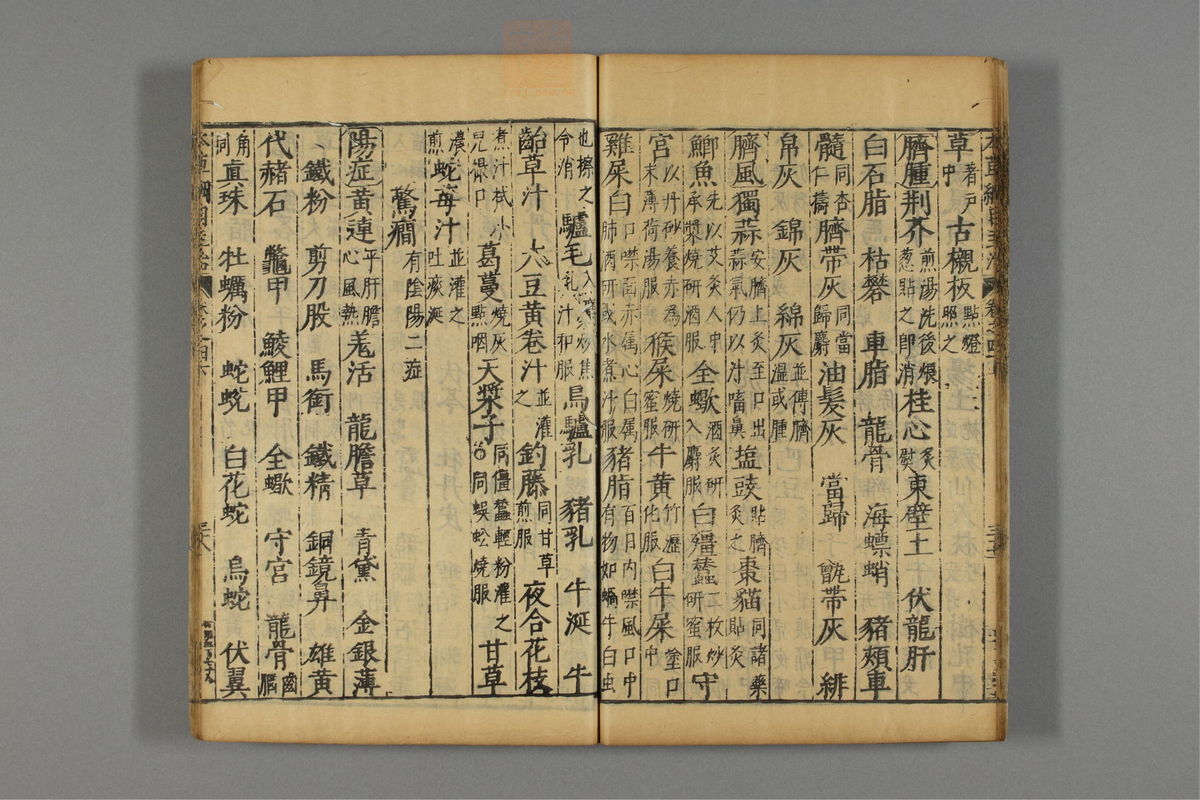 草著戸中古櫬板點燈照之
臍腫荆芥煎湯洗後煨葱貼之即消桂心炙熨東壁土 伏龍肝
白石脂 枯礬 車脂 龍骨 海螵蛸 豬頰車
髓同杏仁擣臍帶灰同當歸麝油髮灰 當歸 甑帶灰 緋
帛灰 錦灰 綿灰並傅臍溫或腫
臍風獨蒜安臍上炙至口出蒜氣仍以汁嗃鼻鹽豉貼臍炙之棗貓同諸藥貼炙
鯽魚先以艾炙人中承漿燒研酒服全蠍酒炙研入麝服白殭蠶二枚炒研蜜服守
宫以丹砂養赤為末薄荷湯服猴屎燒研蜜服牛黄竹瀝化服白牛屎塗口中
雞屎白口噤面赤属心白属肺酒研或水煮汁服豬脂百日内噤風口中有物如蝸牛白虫
也擦之令消驢毛入麝炒焦乳汁和服烏驢乳 豬乳 牛涎 牛
齝草汁 大豆黄卷汁並灌之釣藤同甘草煎服夜合花枝
煮汁拭小兒撮口葛蔓燒灰點咽天漿子同僵蠶輕粉灌之同蜈蚣燒服甘草
濃煎蛇莓汁並灌之吐痰涎
驚癎有陰陽二症
陽症黄連平肝膽心風熱羗活 龍膽草 青黛 金銀薄
鐵粉 剪刀股 馬銜 鐵精 銅鏡鼻 雄黄
代赭石 鼈甲 鯪鯉甲 全蠍 守宮 龍骨齒腦
角同眞珠 牡蠣粉 蛇蛻 白花蛇 烏蛇 伏翼